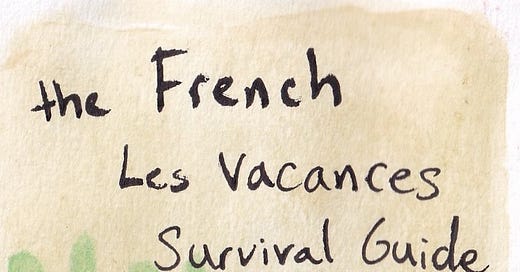 the French
Les Vacances
Survival Guide